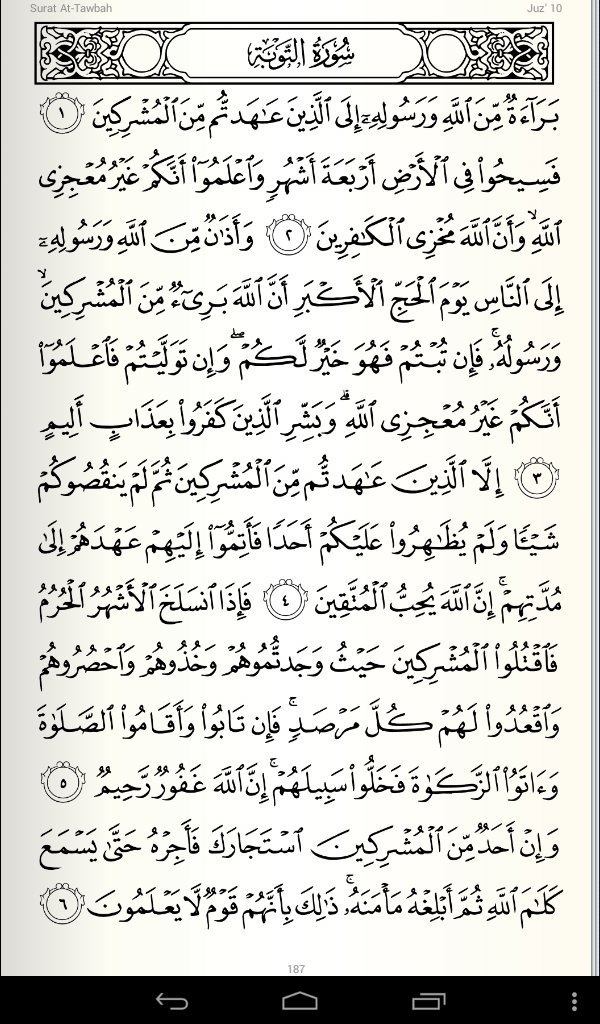 Surat At-Tawbah Juz' 10
سُورَةُ التَّوْبَةِ
بَرَآءَةٌ مِّنَ ٱللَّهِ وَرَسُولِهِۦٓ إِلَى ٱلَّذِينَ عَٰهَدتُّم مِّنَ ٱلْمُشْرِكِينَ ١
فَسِيحُوا۟ فِى ٱلْأَرْضِ أَرْبَعَةَ أَشْهُرٍ وَٱعْلَمُوٓا۟ أَنَّكُمْ غَيْرُ مُعْجِزِى
ٱللَّهِ ۙ وَأَنَّ ٱللَّهَ مُخْزِى ٱلْكَٰفِرِينَ ٢ وَأَذَٰنٌ مِّنَ ٱللَّهِ وَرَسُولِهِۦٓ
إِلَى ٱلنَّاسِ يَوْمَ ٱلْحَجِّ ٱلْأَكْبَرِ أَنَّ ٱللَّهَ بَرِىٓءٌ مِّنَ ٱلْمُشْرِكِينَ ۙ
وَرَسُولُهُۥ ۚ فَإِن تُبْتُمْ فَهُوَ خَيْرٌ لَّكُمْ ۖ وَإِن تَوَلَّيْتُمْ فَٱعْلَمُوٓا۟
أَنَّكُمْ غَيْرُ مُعْجِزِى ٱللَّهِ ۗ وَبَشِّرِ ٱلَّذِينَ كَفَرُوا۟ بِعَذَابٍ أَلِيمٍ
٣ إِلَّا ٱلَّذِينَ عَٰهَدتُّم مِّنَ ٱلْمُشْرِكِينَ ثُمَّ لَمْ يَنقُصُوكُمْ
شَيْـًٔا وَلَمْ يُظَٰهِرُوا۟ عَلَيْكُمْ أَحَدًا فَأَتِمُّوٓا۟ إِلَيْهِمْ عَهْدَهُمْ إِلَىٰ
مُدَّتِهِمْ ۚ إِنَّ ٱللَّهَ يُحِبُّ ٱلْمُتَّقِينَ ٤ فَإِذَا ٱنسَلَخَ ٱلْأَشْهُرُ ٱلْحُرُمُ
فَٱقْتُلُوا۟ ٱلْمُشْرِكِينَ حَيْثُ وَجَدتُّمُوهُمْ وَخُذُوهُمْ وَٱحْصُرُوهُمْ
وَٱقْعُدُوا۟ لَهُمْ كُلَّ مَرْصَدٍ ۚ فَإِن تَابُوا۟ وَأَقَامُوا۟ ٱلصَّلَوٰةَ
وَءَاتَوُا۟ ٱلزَّكَوٰةَ فَخَلُّوا۟ سَبِيلَهُمْ ۚ إِنَّ ٱللَّهَ غَفُورٌ رَّحِيمٌ ٥
وَإِنْ أَحَدٌ مِّنَ ٱلْمُشْرِكِينَ ٱسْتَجَارَكَ فَأَجِرْهُ حَتَّىٰ يَسْمَعَ
كَلَٰمَ ٱللَّهِ ثُمَّ أَبْلِغْهُ مَأْمَنَهُۥ ۚ ذَٰلِكَ بِأَنَّهُمْ قَوْمٌ لَّا يَعْلَمُونَ ٦
187